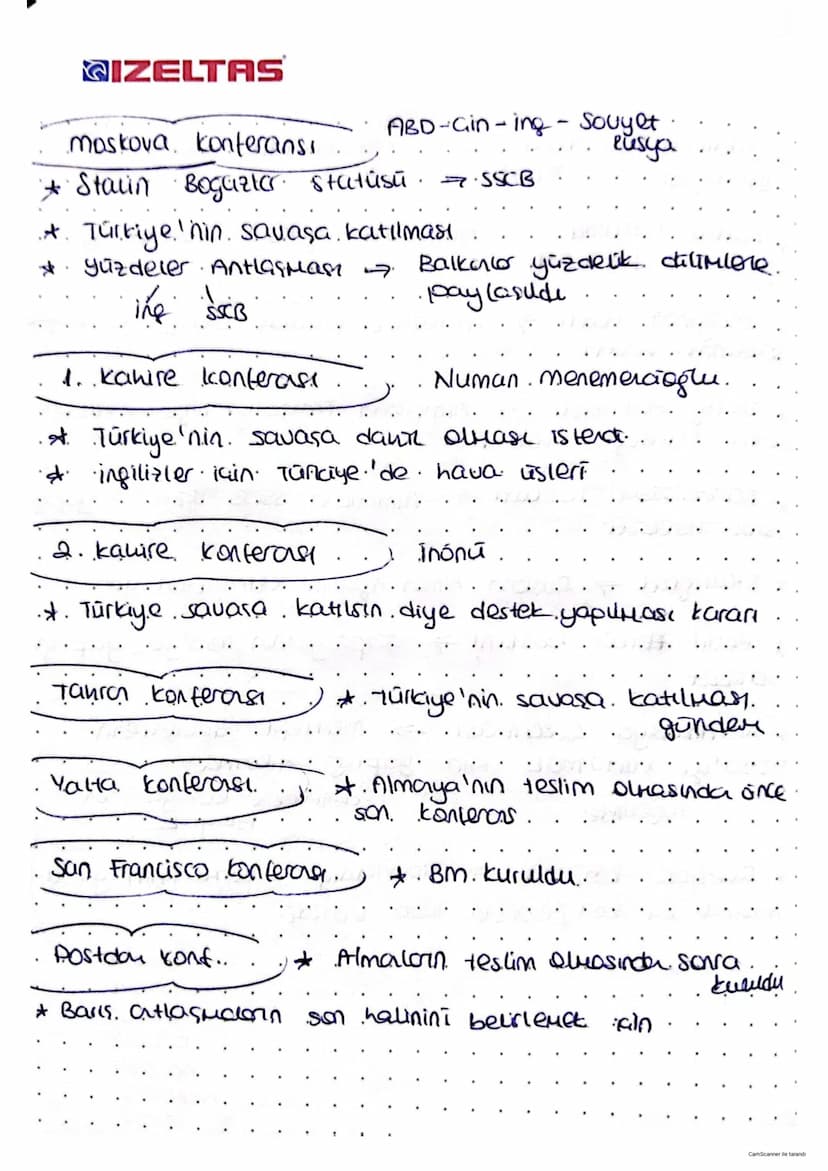 IZELTAS
Moskova Konferansı
ABD-Çin-ing - Sovyet
Rusya
* Stalin Boğazlar Statüsü → SSCB
* Türkiye'nin savaşa katılması
* Yüzdeler Antlaşması → Balkanlar yüzdelik dilimlere
paylaşıldı
ing SSCB
1. Kahire Konferası
Numan Menemencioğlu
* Türkiye'nin savaşa dahil olması istendi
* ingilizler için Türkiye'de hava üsleri
2. Kahire Konferası
İnönü
* Türkiye savaşa katılsın diye destek yapılması kararı
Tahran Konferansı
* Türkiye'nin savaşa katılması
gündem
Yalta Konferası
* Almanya'nın teslim olmasında önce
son konferans
San Francisco Konferası
* Bm. kuruldu
Postdam Konf..
* Almaların teslim olmasından sonra
kuruldu
* Barış antlaşmaların son halinini belirlemek için
CamScanner ile tarandı